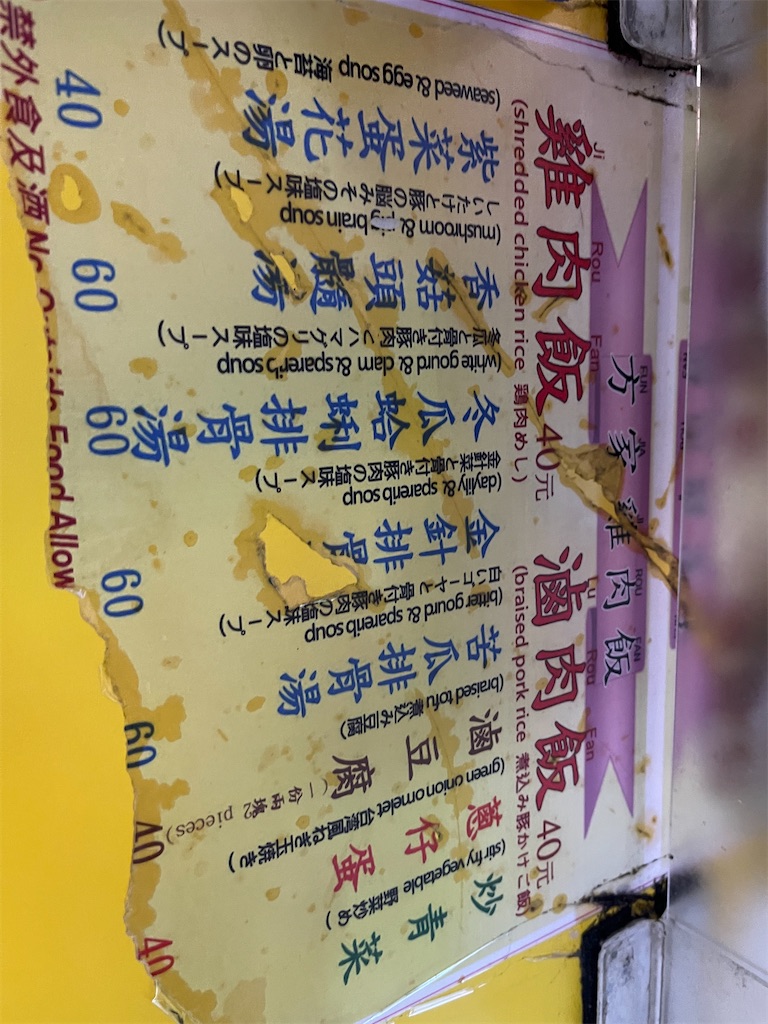 FUN JIA JI ROU FAN
方家雞肉飯
Ji Rou Fan
雞肉飯 40元
(shredded chicken rice 鶏肉めし)
Lu Rou Fan
滷肉飯 40元
(braised pork rice 煮込み豚かけご飯)
炒青菜
(stirfry vegetable 野菜炒め)
蔥仔蛋
(green onion omelet 台湾風ねぎ玉焼き)
40
滷豆腐
(一份兩塊2 pieces)
(braised tofu 煮込み豆腐)
40
苦瓜排骨湯
(bitter gourd & sparerib soup
白いゴーヤと骨付き豚肉の塩味スープ)
60
金針排骨
(daylily & sparerib soup
金針菜と骨付き豚肉の塩味スープ)
60
冬瓜蛤蜊排骨湯
(white gourd & clam & sparerib soup
冬瓜と骨付き豚肉とハマグリの塩味スープ)
60
香菇頭髓湯
(mushroom & brain soup
しいたけと豚の脳みその塩味スープ)
60
紫菜蛋花湯
(seaweed & egg soup 海苔と卵のスープ)
40
禁外食及酒 No Outside Food Allow